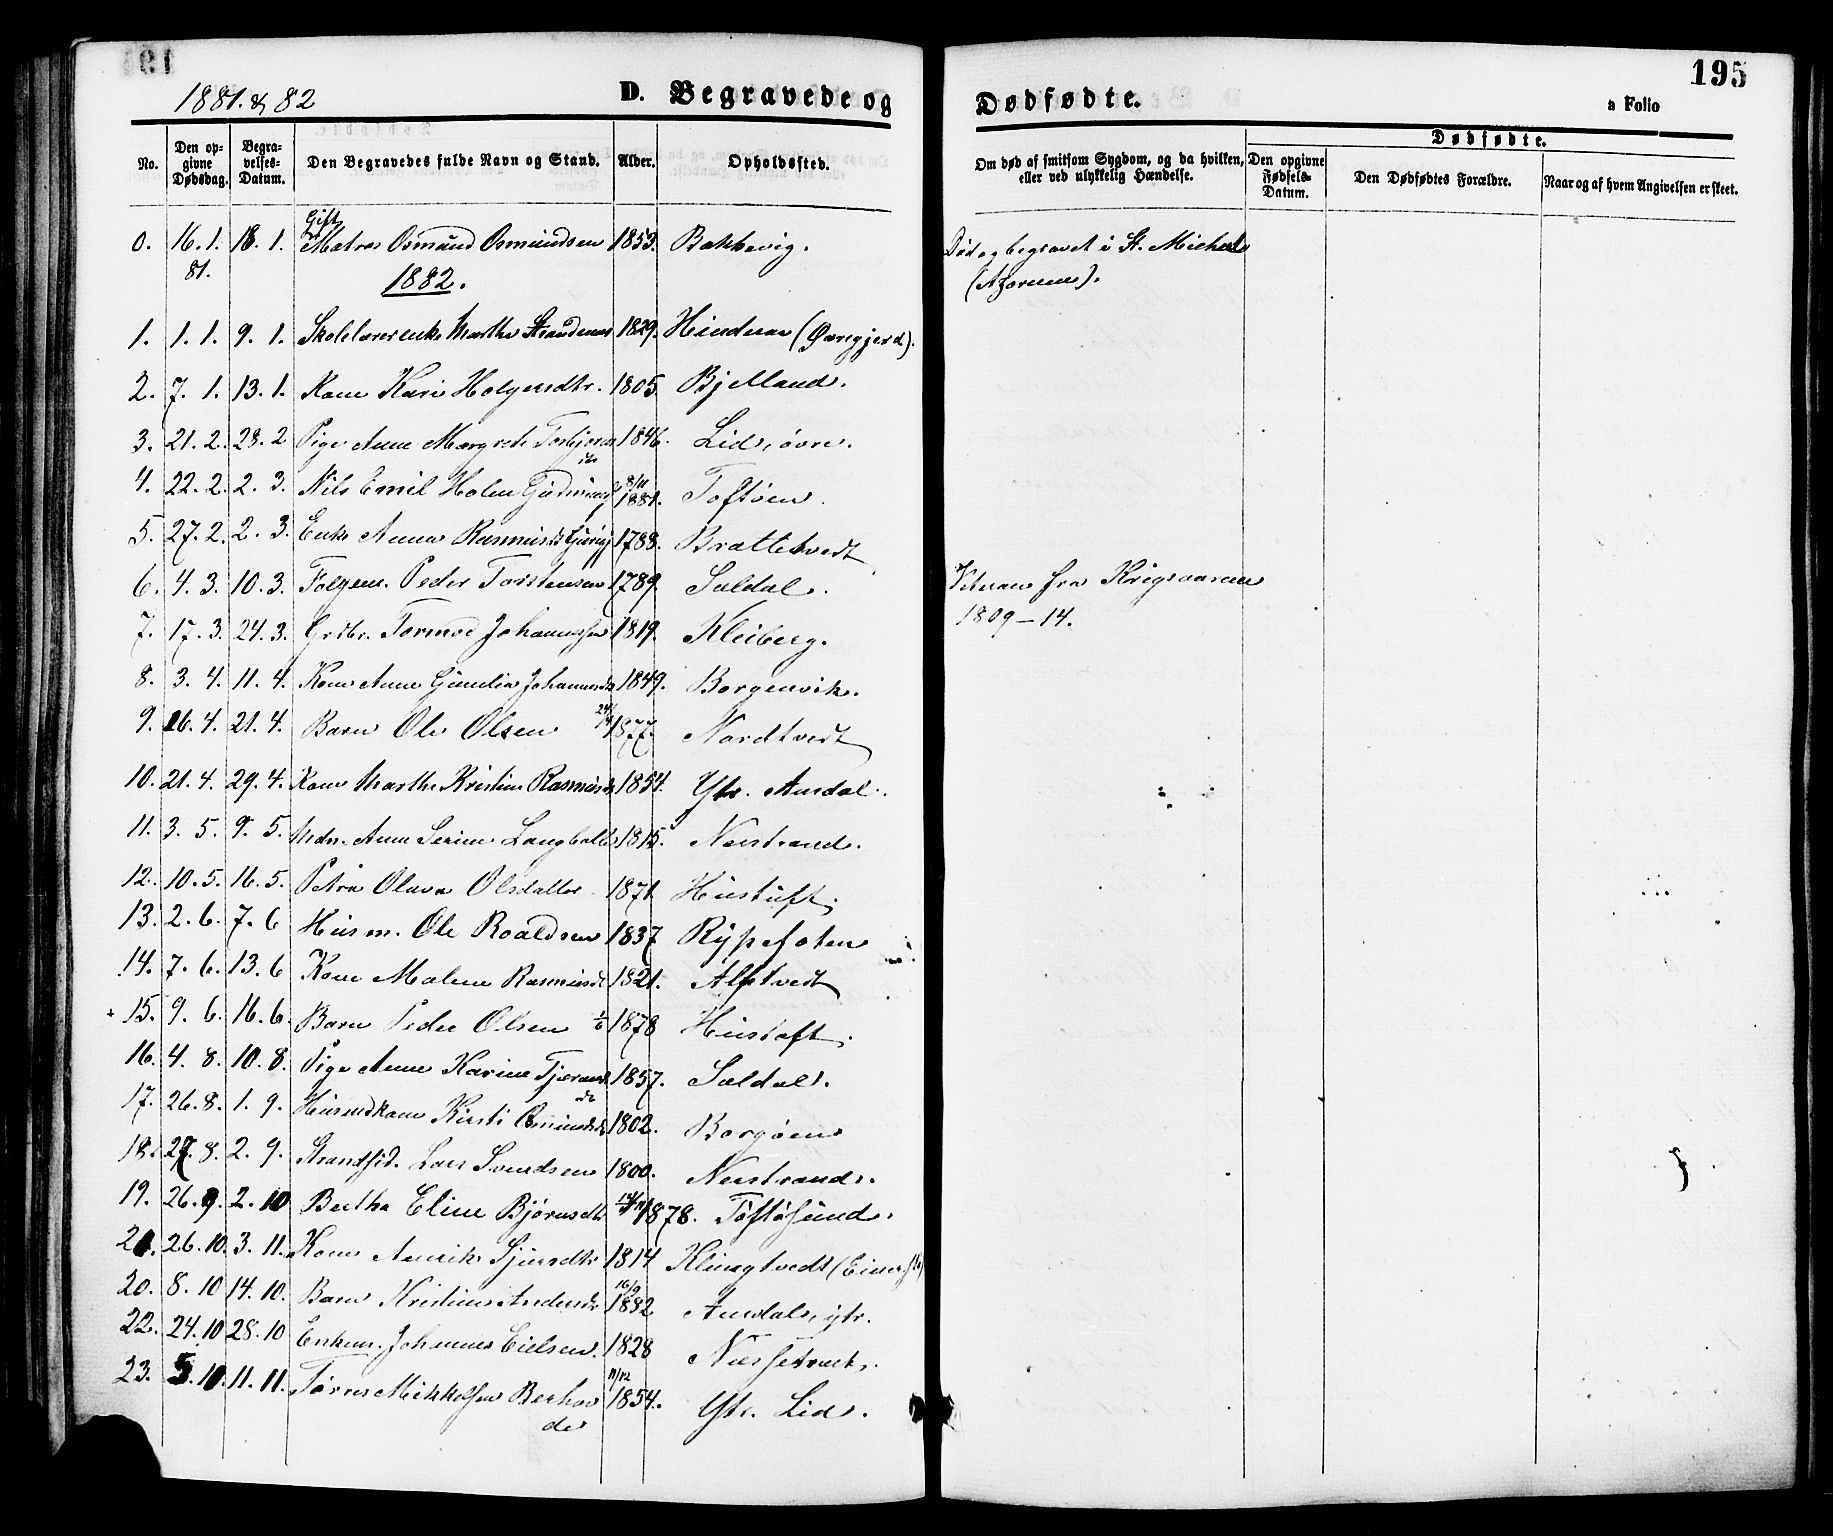 1881. & 82
D. Begravede og
Dødfødte.
195
a Folio
No.
Den opgivne Dødsdag.
Begravelses-Datum.
Den Begravedes fulde Navn og Stand.
Alder.
Opholdssted.
Om død af smitsom Sygdom, og da hvilken, eller ved ulykkelig Hændelse.
Dødfødte.
Den opgivne Fødsels-Datum.
Den Dødfødtes Forældre.
Naar og af hvem Angivelsen er skeet.
0. 16. 1. 81. 18. 1. Gift Matros Osmund Osmundsen 1853. Bakkevig. Død og begravet i St. Michels
(Azorerne).
1882.
1. 1. 1. 9. 1. Skolelærerenke Marthe 1829. Hinderaa (Øvregjerd).
2. 7. 1. 13. 1. Kone Kari Holgersdtr. 1805. Bjelland.
3. 21. 2. 28. 2 Pige Anne Margrete 1846. Lid, övre.
4. 22. 2. 2. 3. Nils Emil Holm 8/11 1881. Toftöen.
5. 27. 2. 2. 3. Enke Anna 1788. Brattetvedt
6. 4. 3. 10. 3. Folgem. Peder Torstensen 1789. Saldal. Veteran fra Krigsaarene
1809-14.
7. 17. 3. 24. 3. Grdbr. Tormod Johannessen 1819. Kleiberg.
8. 3. 4. 11. 4. Kone Anne Gunelia Johannesdtr 1849. Borgenvik.
9. 16. 4. 21. 4. Barn Ole Olsen 1877. Nordtvedt
10. 21. 4. 29. 4. Kone Marthe Kristine Rasmusdtr 1854. Ytr. Amdal.
11. 3. 5. 9. 5. Anne Serine 1815. Nerstrand.
12. 10. 5. 16. 5. Petra Olava Olsdatter 1871. Hustuft.
13. 2. 6. 7. 6 Husm. Ole Roaldsen 1837 Rypefoten
14. 7. 6. 13. 6 Kone Malene Rasmusdt 1821. Alfstvedt
15. 9. 6. 16. 6. Barn Peder Olsen 1/6 1878 Hustoft.
16. 4. 8. 10. 8. Pige Anne Karine 1857. Saldal.
17. 26. 8. 1. 9. Husmdkone Kirsti Osmundsdtr 1802. Borgöen
18. 27. 8. 2. 9. Strandsid. Lars Svendsen 1800. Nerstrand.
19. 26. 9. 2. 10 Bertha Eline Björnsdtr 1878. Toftösund.
21. 26. 10. 3. 11. Kone 1814 Klungtvedt
20. 8. 10 14. 10. Barn Kristine Andersdtr 16/9 1882 Amdal, ytr.
22. 24. 10 28. 10 Enkem. Johannes Eielsen. 1828
23. 5. 10. 11. 11. Törres Mikkelsen 11/12 1854. Ytr. Lid.